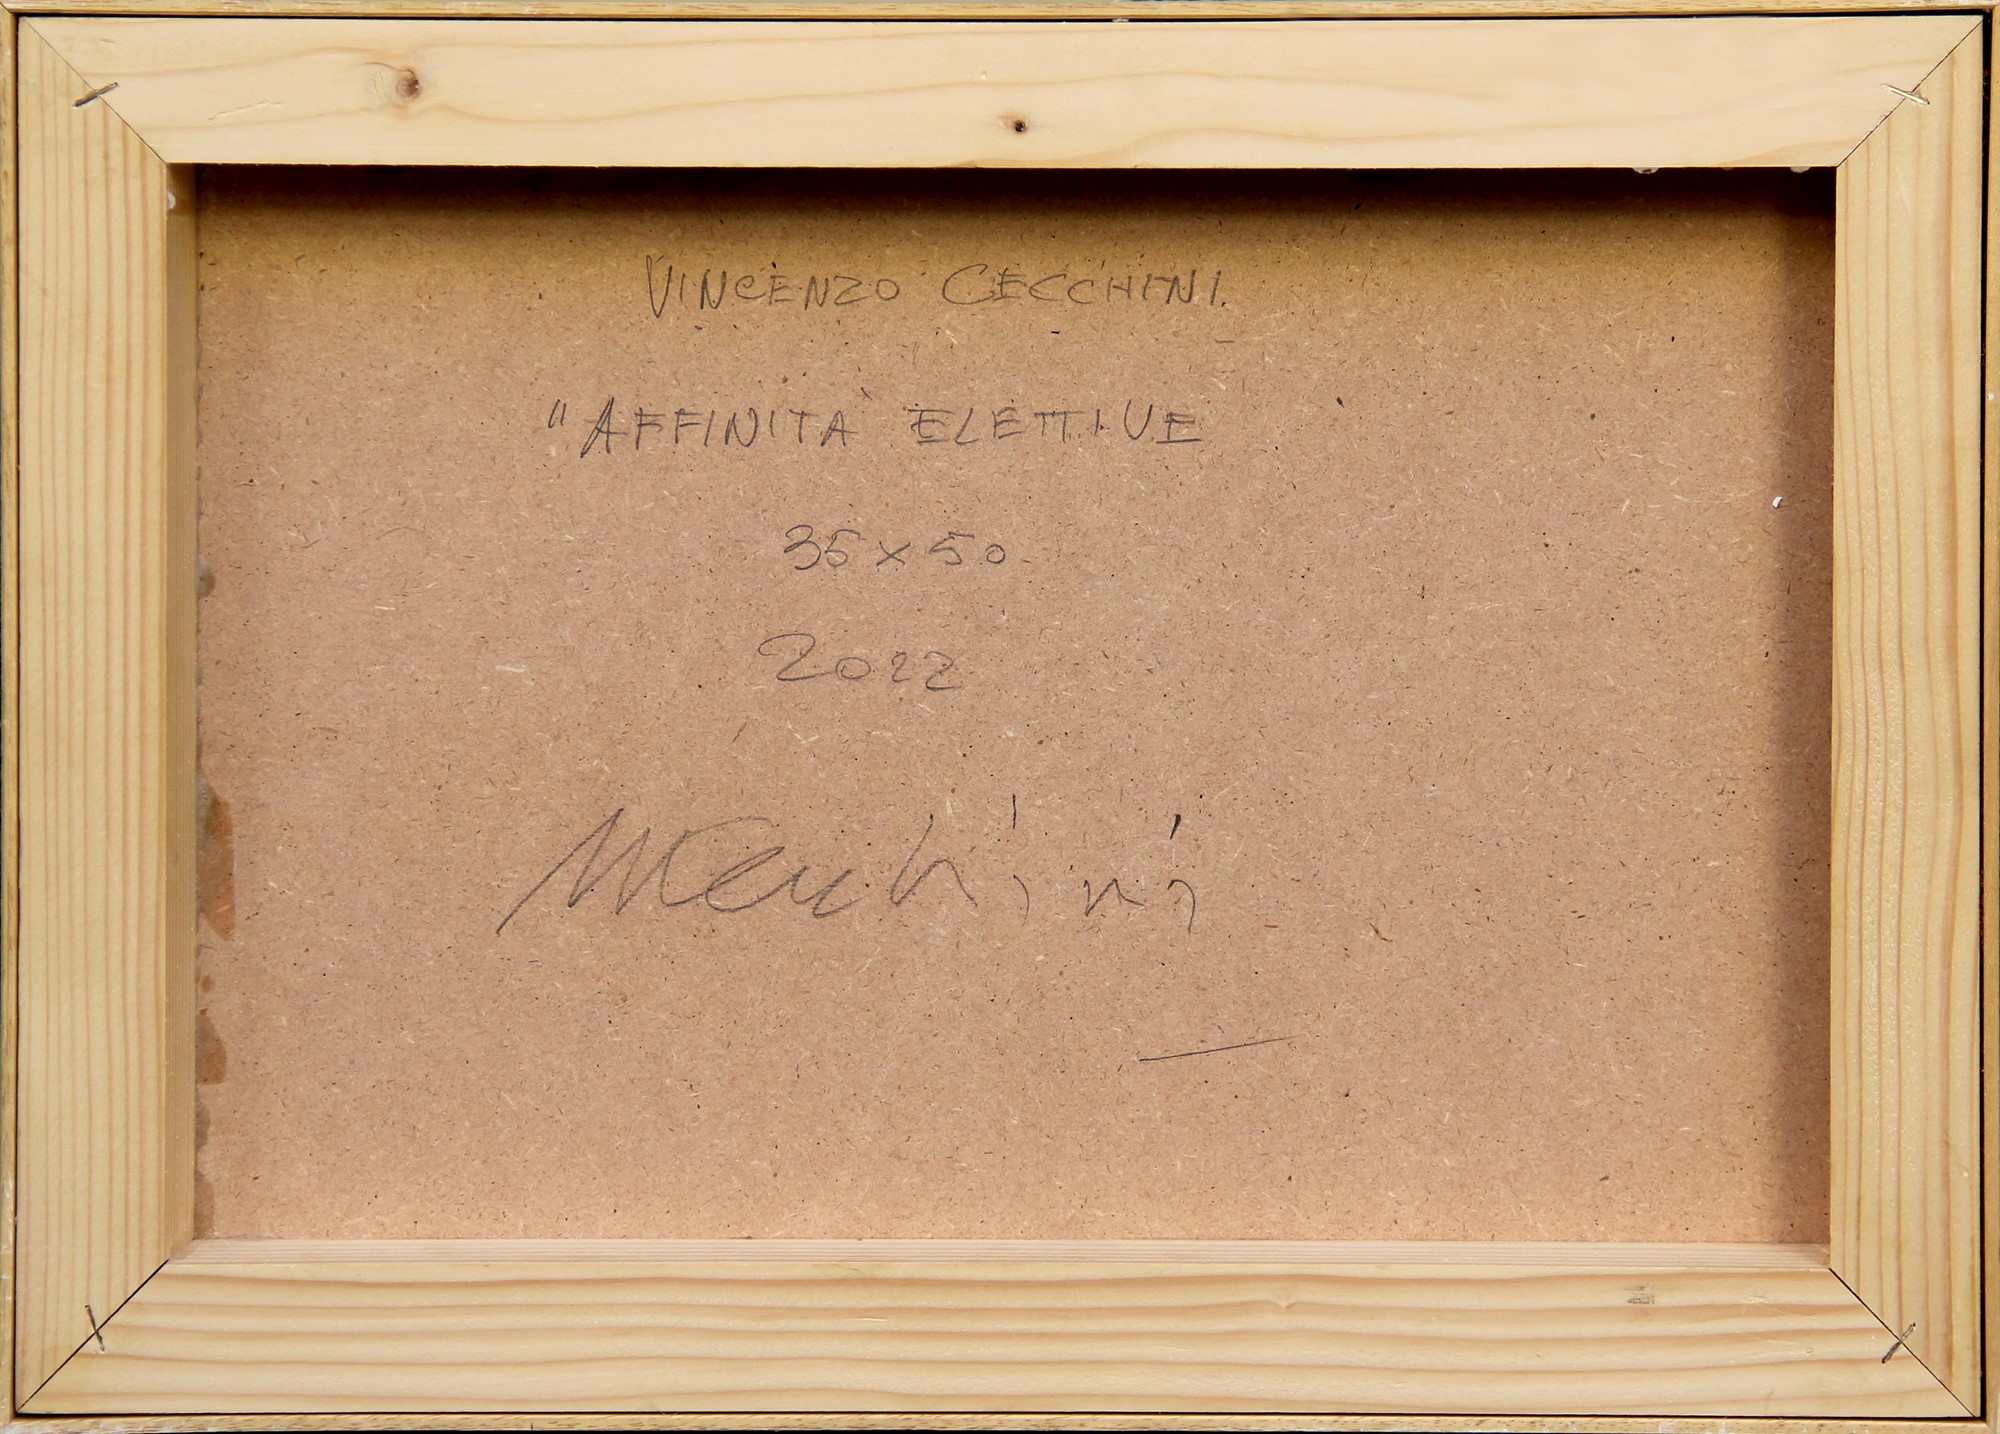 VINCENZO CECCHINI.
"AFFINITA' ELETTIVE
35 x 50
2022
VCecchini